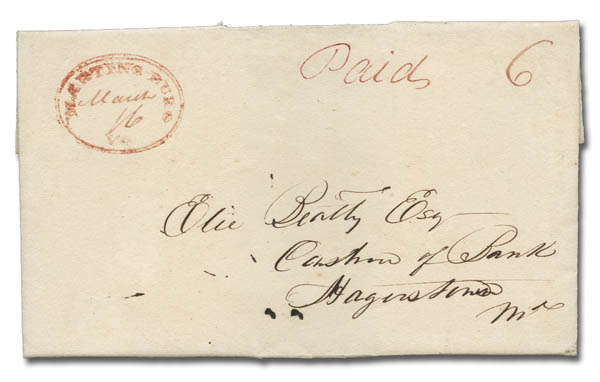 MARTINSBURG
March
16
Va
Paid 6
Elie Beatty Esq
Cashier of Bank
Hagerstown
Md